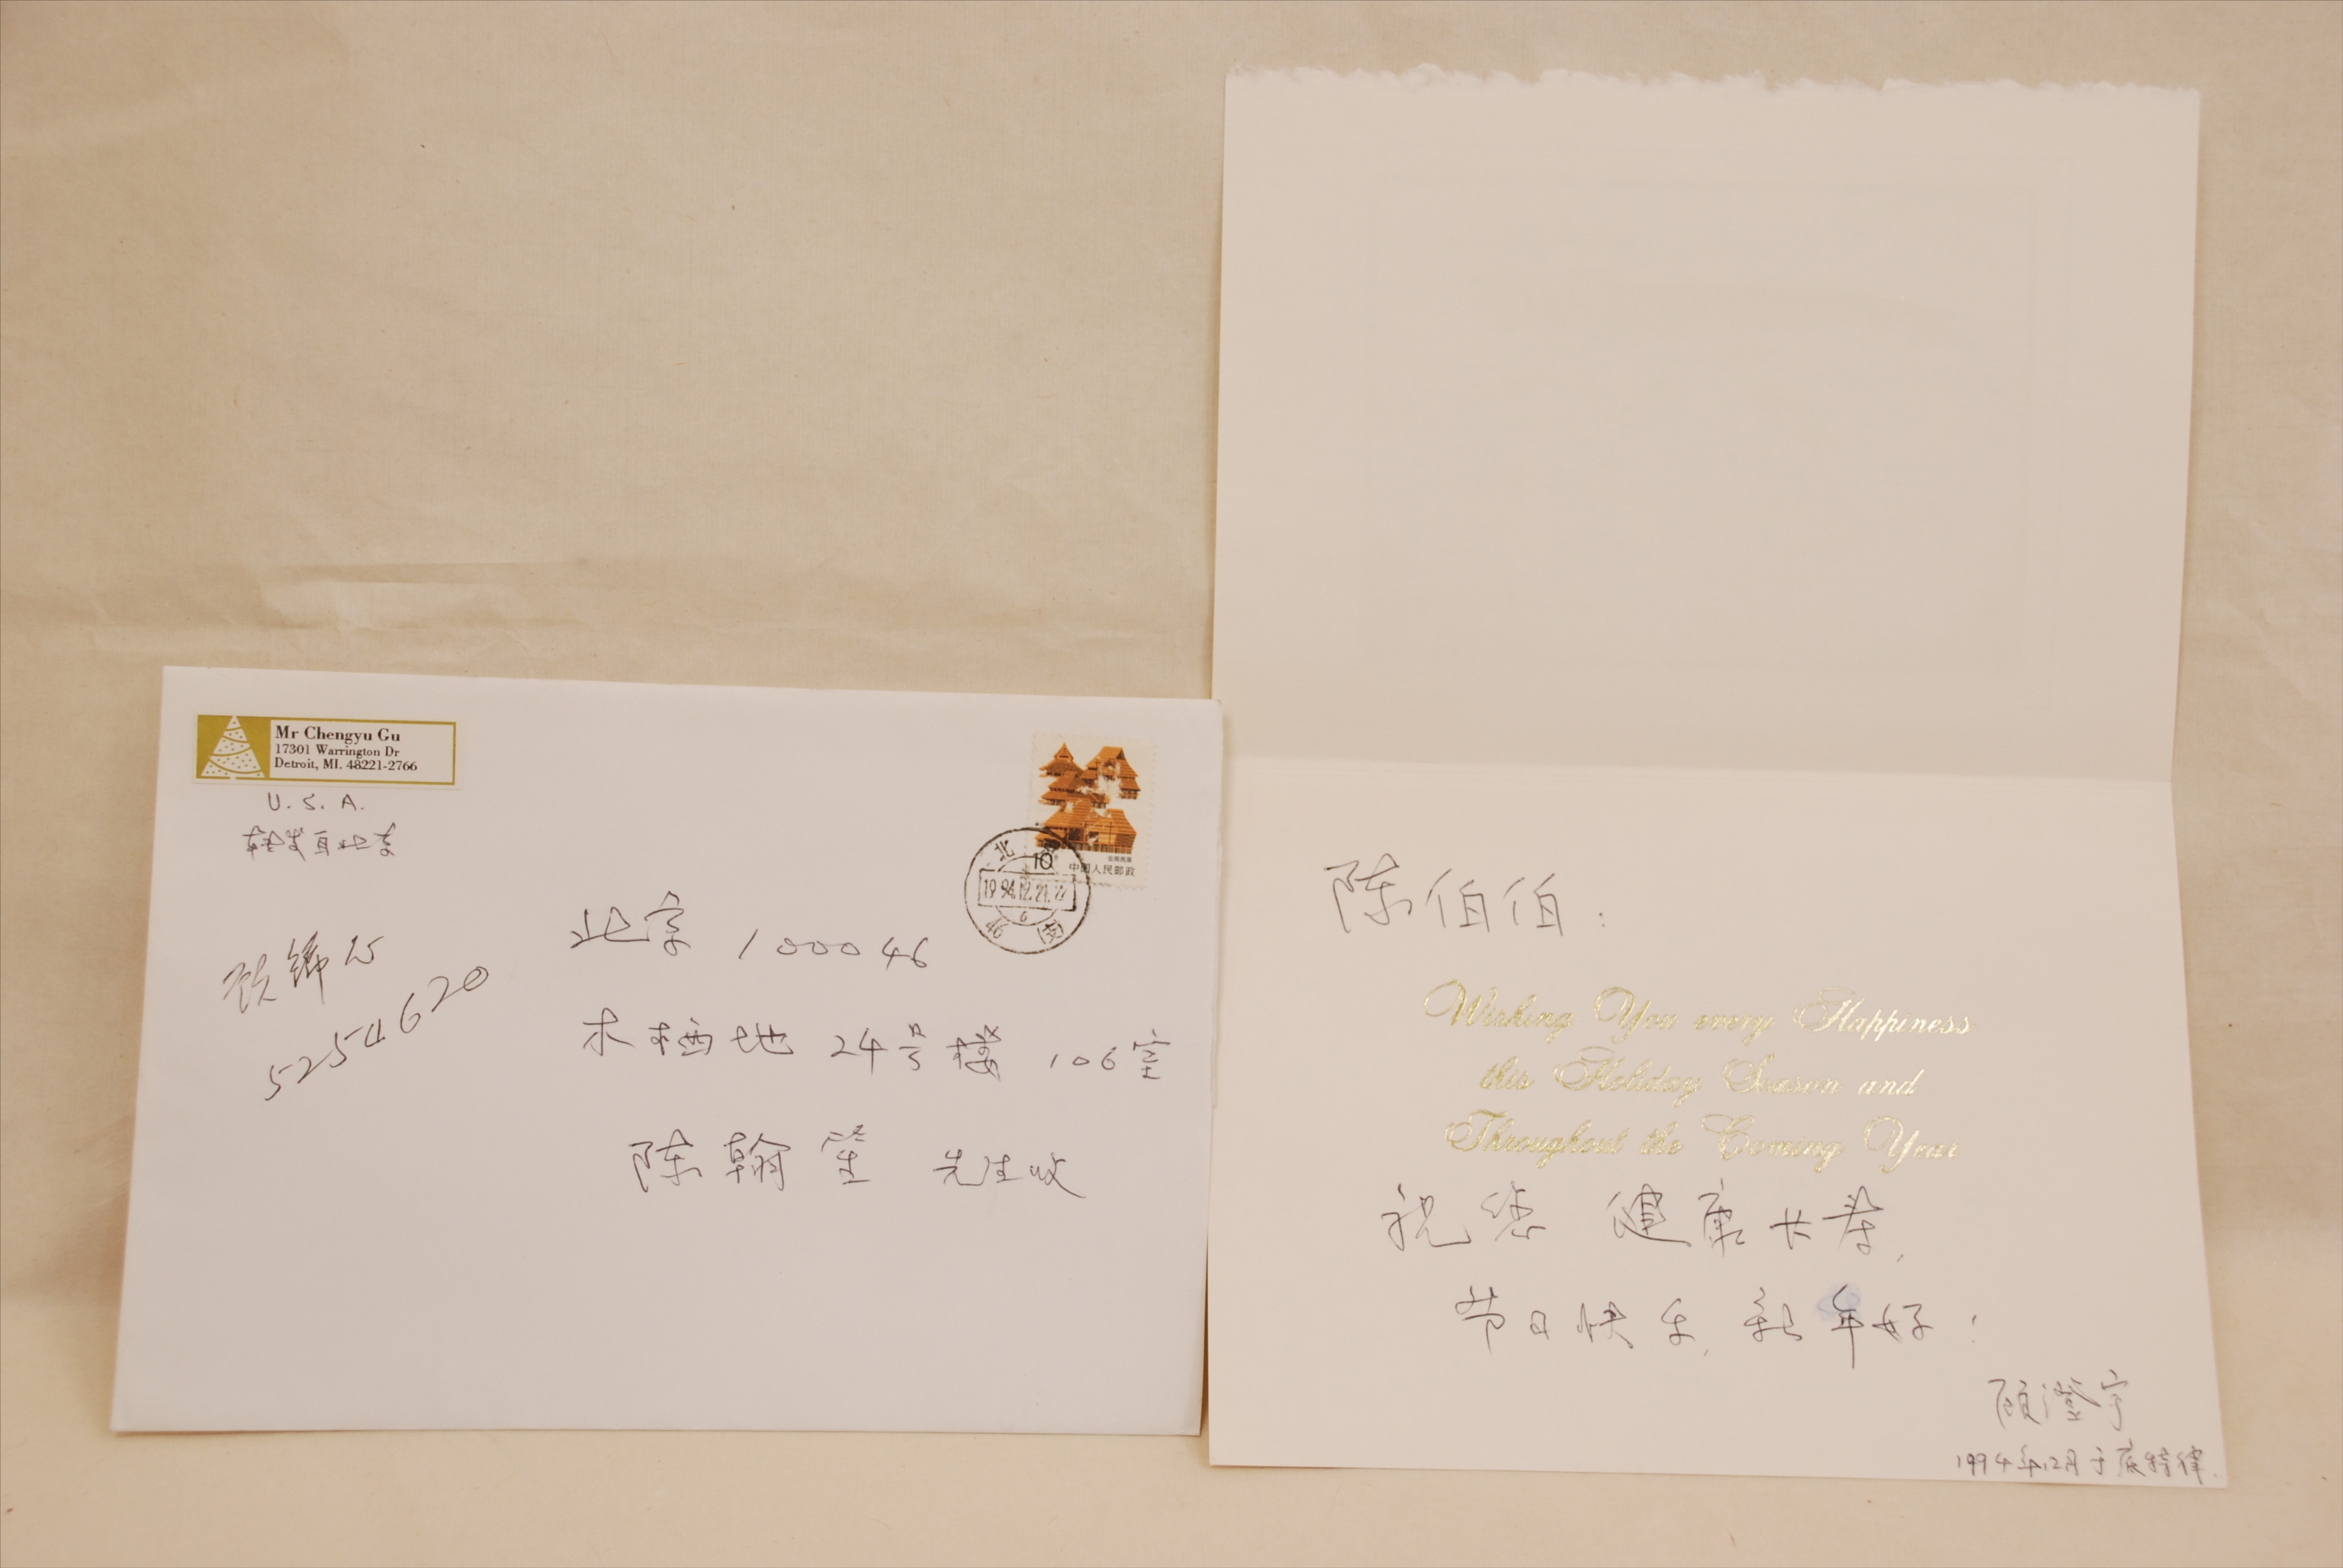 Mr Chengyu Gu
17301 Warrington Dr
Detroit, MI. 48221-2766
U.S.A.
转发自北京
顾锦心
5254620
10
中国人民邮政
北
1994.12.21.
北京 100046
木樨地 24号楼 106室
陈翰笙 先生收
陈伯伯:
Wishing You every Happiness
this Holiday Season and
Throughout the Coming Year
祝您 健康长寿,
节日快乐,新年好!
顾澄宇
1994年12月于底特律.